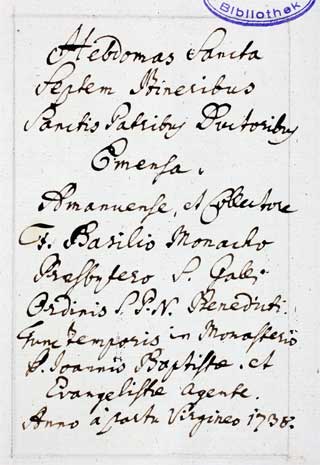 Bibliothek
Hebdomas Sancta
Septem Itineribus
Sanctis Patribus Ductoribus
Emensa.
Amanuense, et Collectore
F. Basilio Monacho
Presbytero S. Galli
Ordinis S. P. N. Benedicti.
Tunc temporis in Monasterio
S. Joannis Baptistæ et
Evangelistæ agente.
Anno à partu Virgineo 1738.